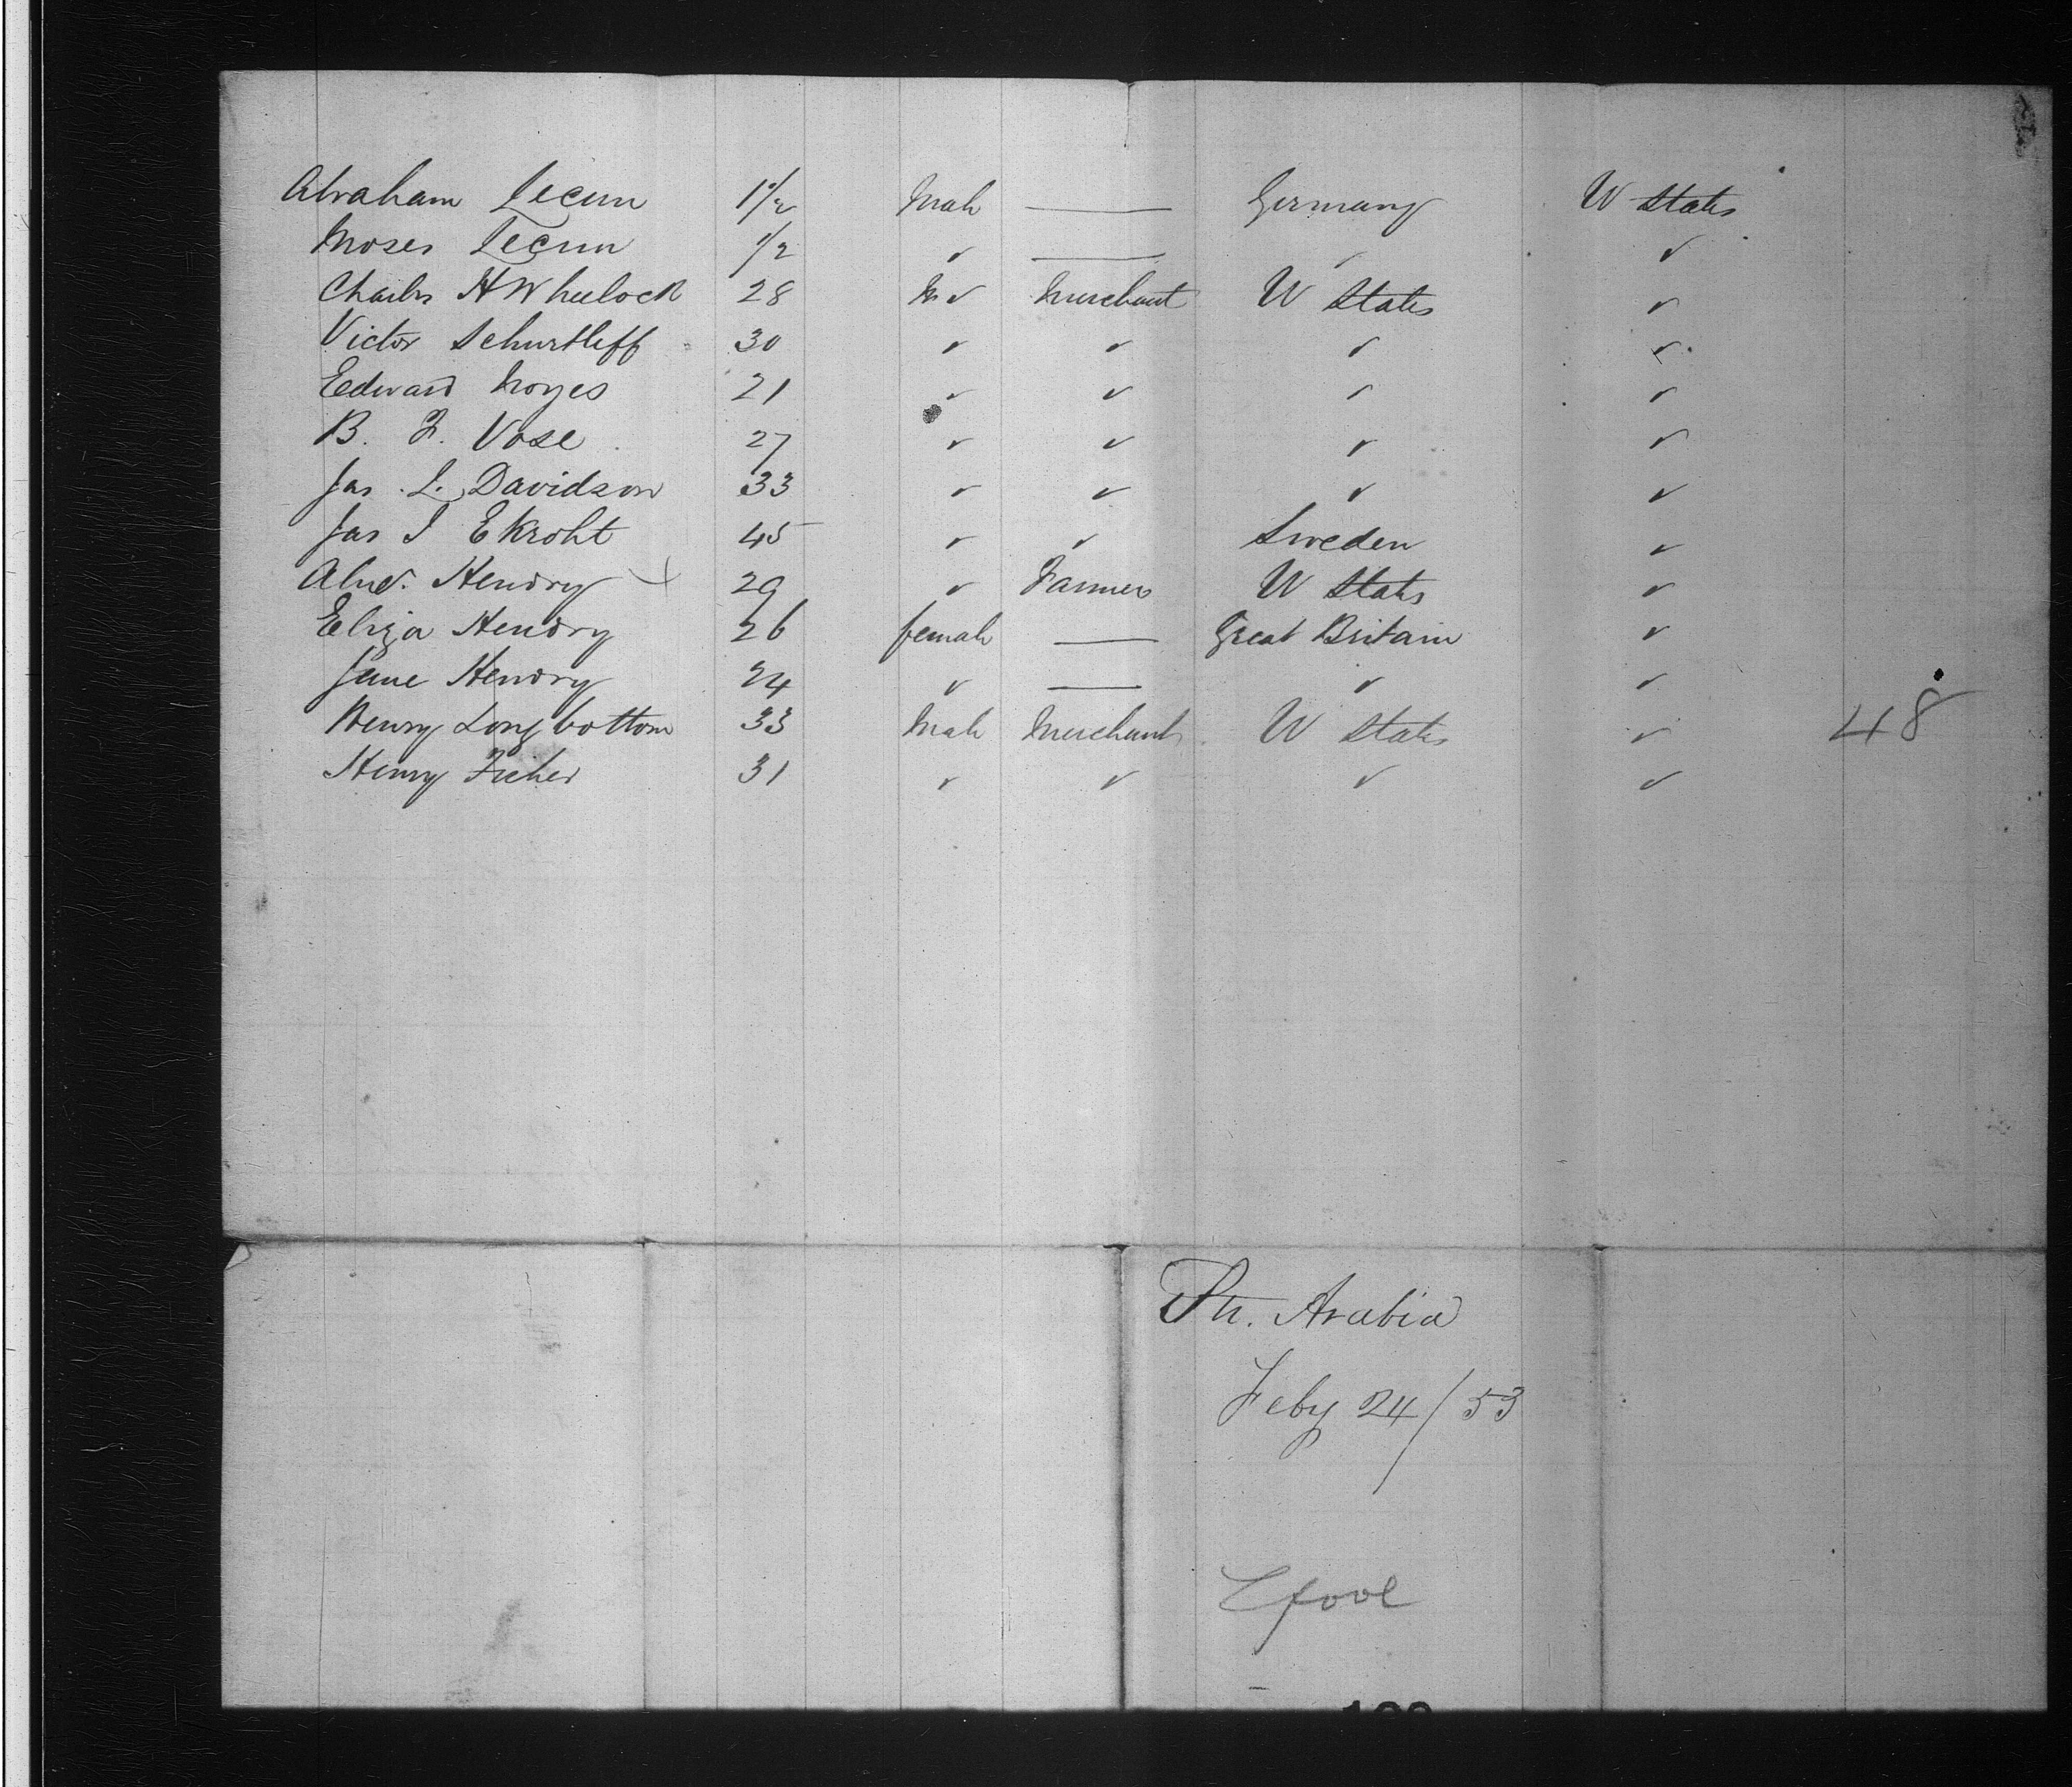 Abraham Lecun 1 1/2 Male — Germany U States
Moses Lecun 1/2 ✓ — ✓ ✓
Charles H Wheelock 28 M ✓ Merchant U States ✓
Victor Schurtleff 30 ✓ ✓ ✓ ✓
Edward Noyes 21 ✓ ✓ ✓ ✓
B. F. Vose 27 ✓ ✓ ✓ ✓
Jas. L. Davidson 33 ✓ ✓ ✓ ✓
Jas I Ekroht 45 ✓ ✓ Sweden ✓
Hendry 29 ✓ Farmer U States ✓
Eliza Hendry 26 female — Great Britain ✓
Jane Hendry 24 ✓ — ✓ ✓
Henry Longbottom 33 Male Merchant U States ✓ 48
Henry 31 ✓ ✓ ✓ ✓
Str. Arabia
Feby 24/53
Lpool